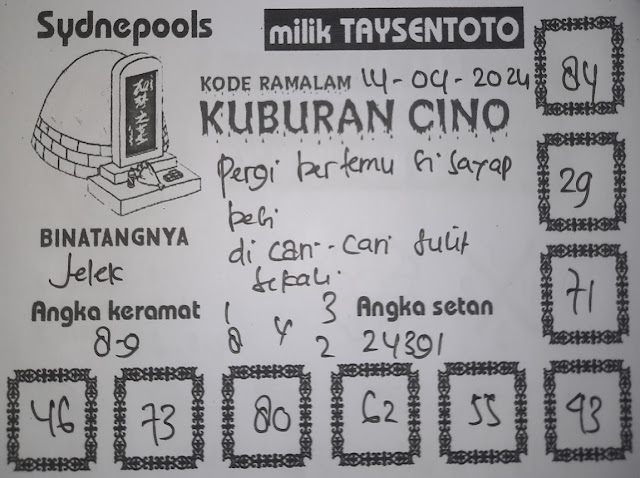 Sydnepools
milik TAYSENTOTO
KODE RAMALAM 14-04-2024
KUBURAN CINO
84
29
71
Pergi bertemu si sayap
besi
di cari-cari sulit
sekali
BINATANGNYA
Jelek
Angka keramat
8-9
1 3
4
8 2
Angka setan
24391
46
73
80
62
55
93